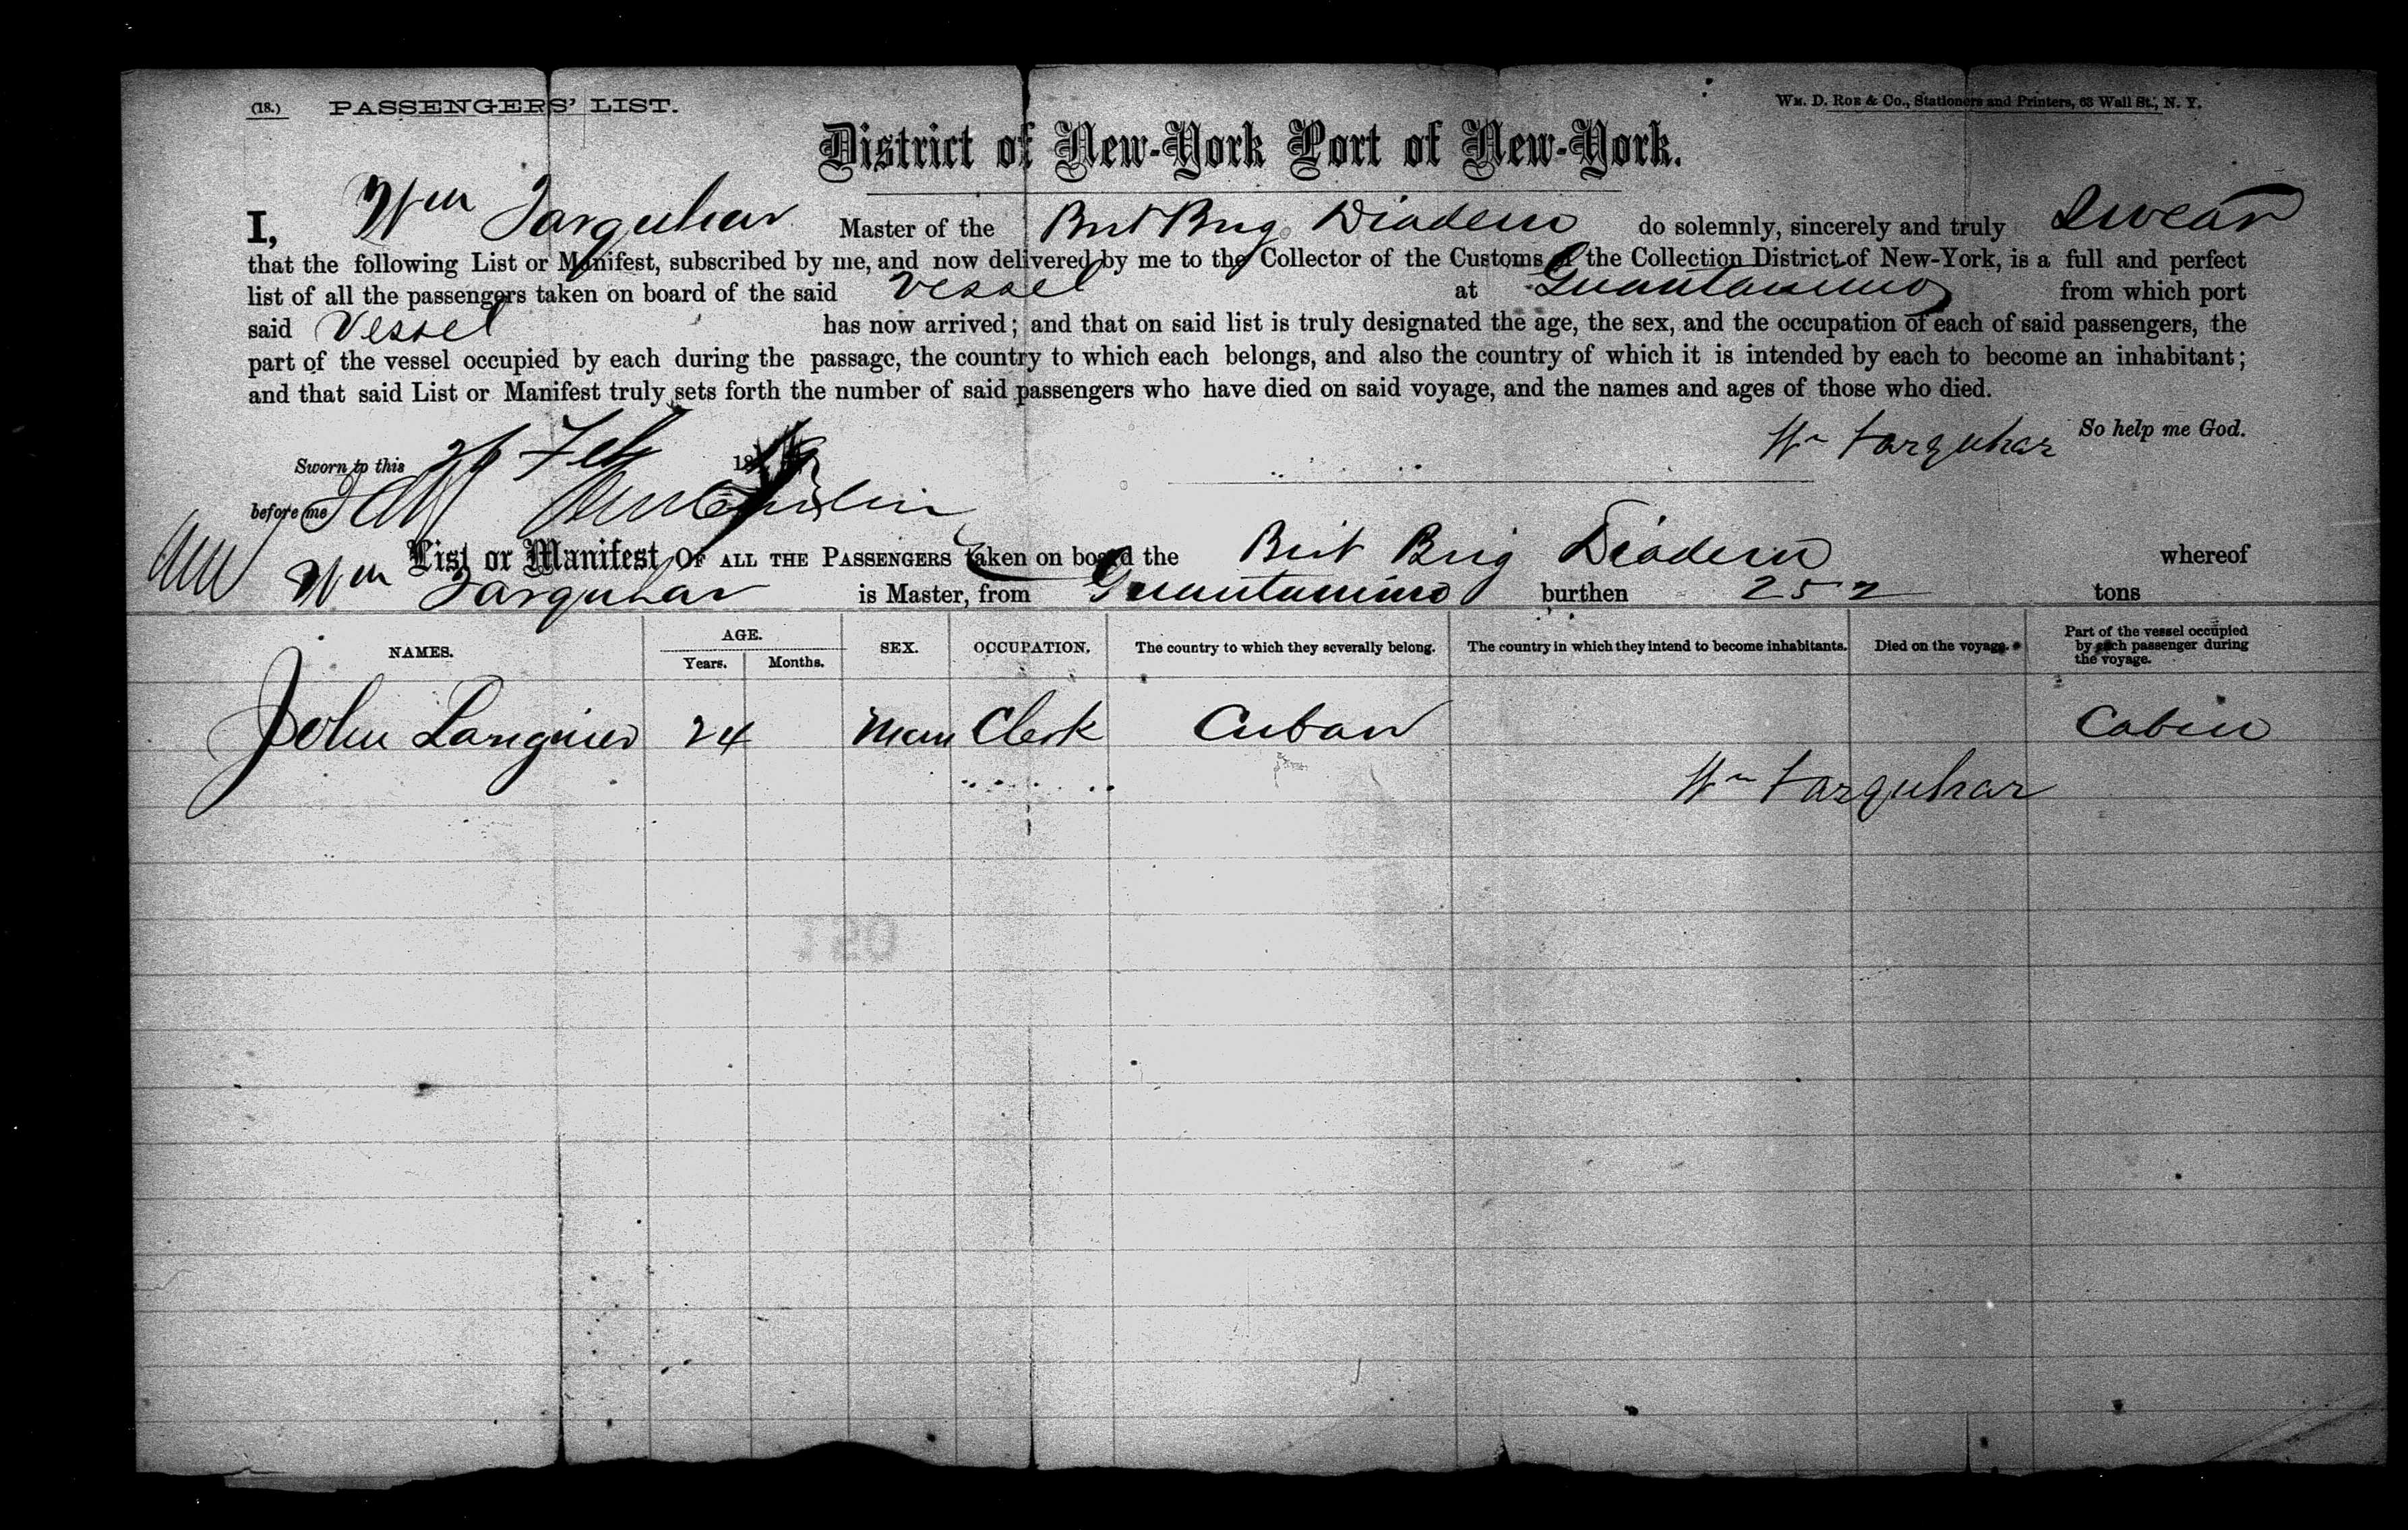 (18.) PASSENGERS' LIST. WM. D. ROE & CO., Stationers and Printers, 63 Wall St., N. Y.
District of New-York Port of New-York.
I, Wm Farquhar Master of the Brit Brig Diadem do solemnly, sincerely and truly Swear
that the following List or Manifest, subscribed by me, and now delivered by me to the Collector of the Customs of the Collection District of New-York, is a full and perfect
list of all the passengers taken on board of the said Vessel at Guantanamo from which port
said Vessel has now arrived; and that on said list is truly designated the age, the sex, and the occupation of each of said passengers, the
part of the vessel occupied by each during the passage, the country to which each belongs, and also the country of which it is intended by each to become an inhabitant;
and that said List or Manifest truly sets forth the number of said passengers who have died on said voyage, and the names and ages of those who died.
Wm Farquhar So help me God.
Sworn to this 26 Feb 18
before me
List or Manifest OF ALL THE PASSENGERS taken on board the Brit Brig Diadem whereof
Wm Farquhar is Master, from Guantanamo burthen 252 tons
NAMES. AGE. Years. Months. SEX. OCCUPATION. The country to which they severally belong. The country in which they intend to become inhabitants. Died on the voyage. Part of the vessel occupied by each passenger during the voyage.
John 24 Man Clerk Cuban Cabin
Wm Farquhar